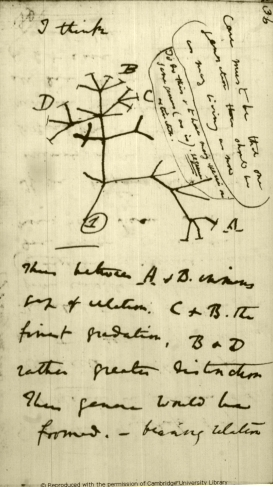 36
I think
Case must be that one
generation then should be
as many living as now
To do this & to have many species in
same genus (as is). requires
extinction
B
D
C
1
A
Thus between A & B. immens
gap of relation. C & B. the
finest gradation, B & D
rather greater distinction
Thus genera would be
formed. — bearing relation
© Reproduced with the permission of Cambridge University Library